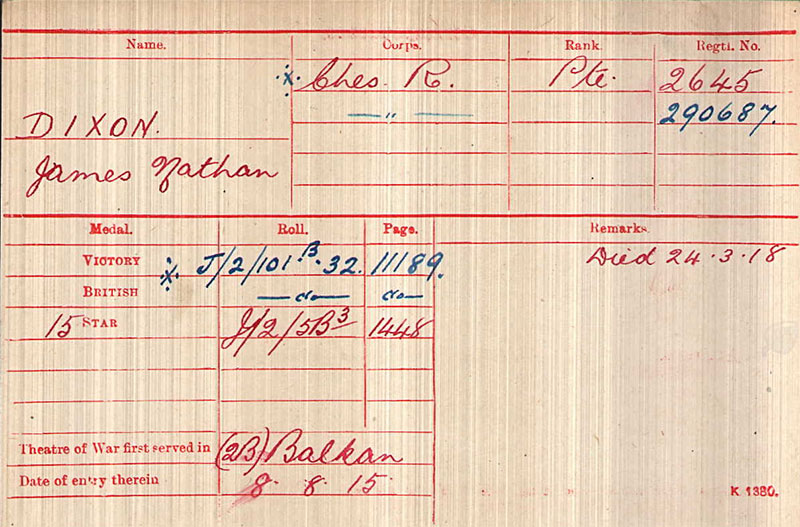 Name. Corps. Rank. Regtl. No.
·x· Ches. R. Pte. 2645
DIXON. — " — 290687.
James Nathan
Medal. Roll. Page. Remarks.
VICTORY ·x· J/2/101 B·32. 11189. Died 24·3·18
BRITISH —do— do—
15 STAR J/2/5B3 1448
Theatre of War first served in (2B) Balkan
Date of entry therein 8· 8 15
K 1380.